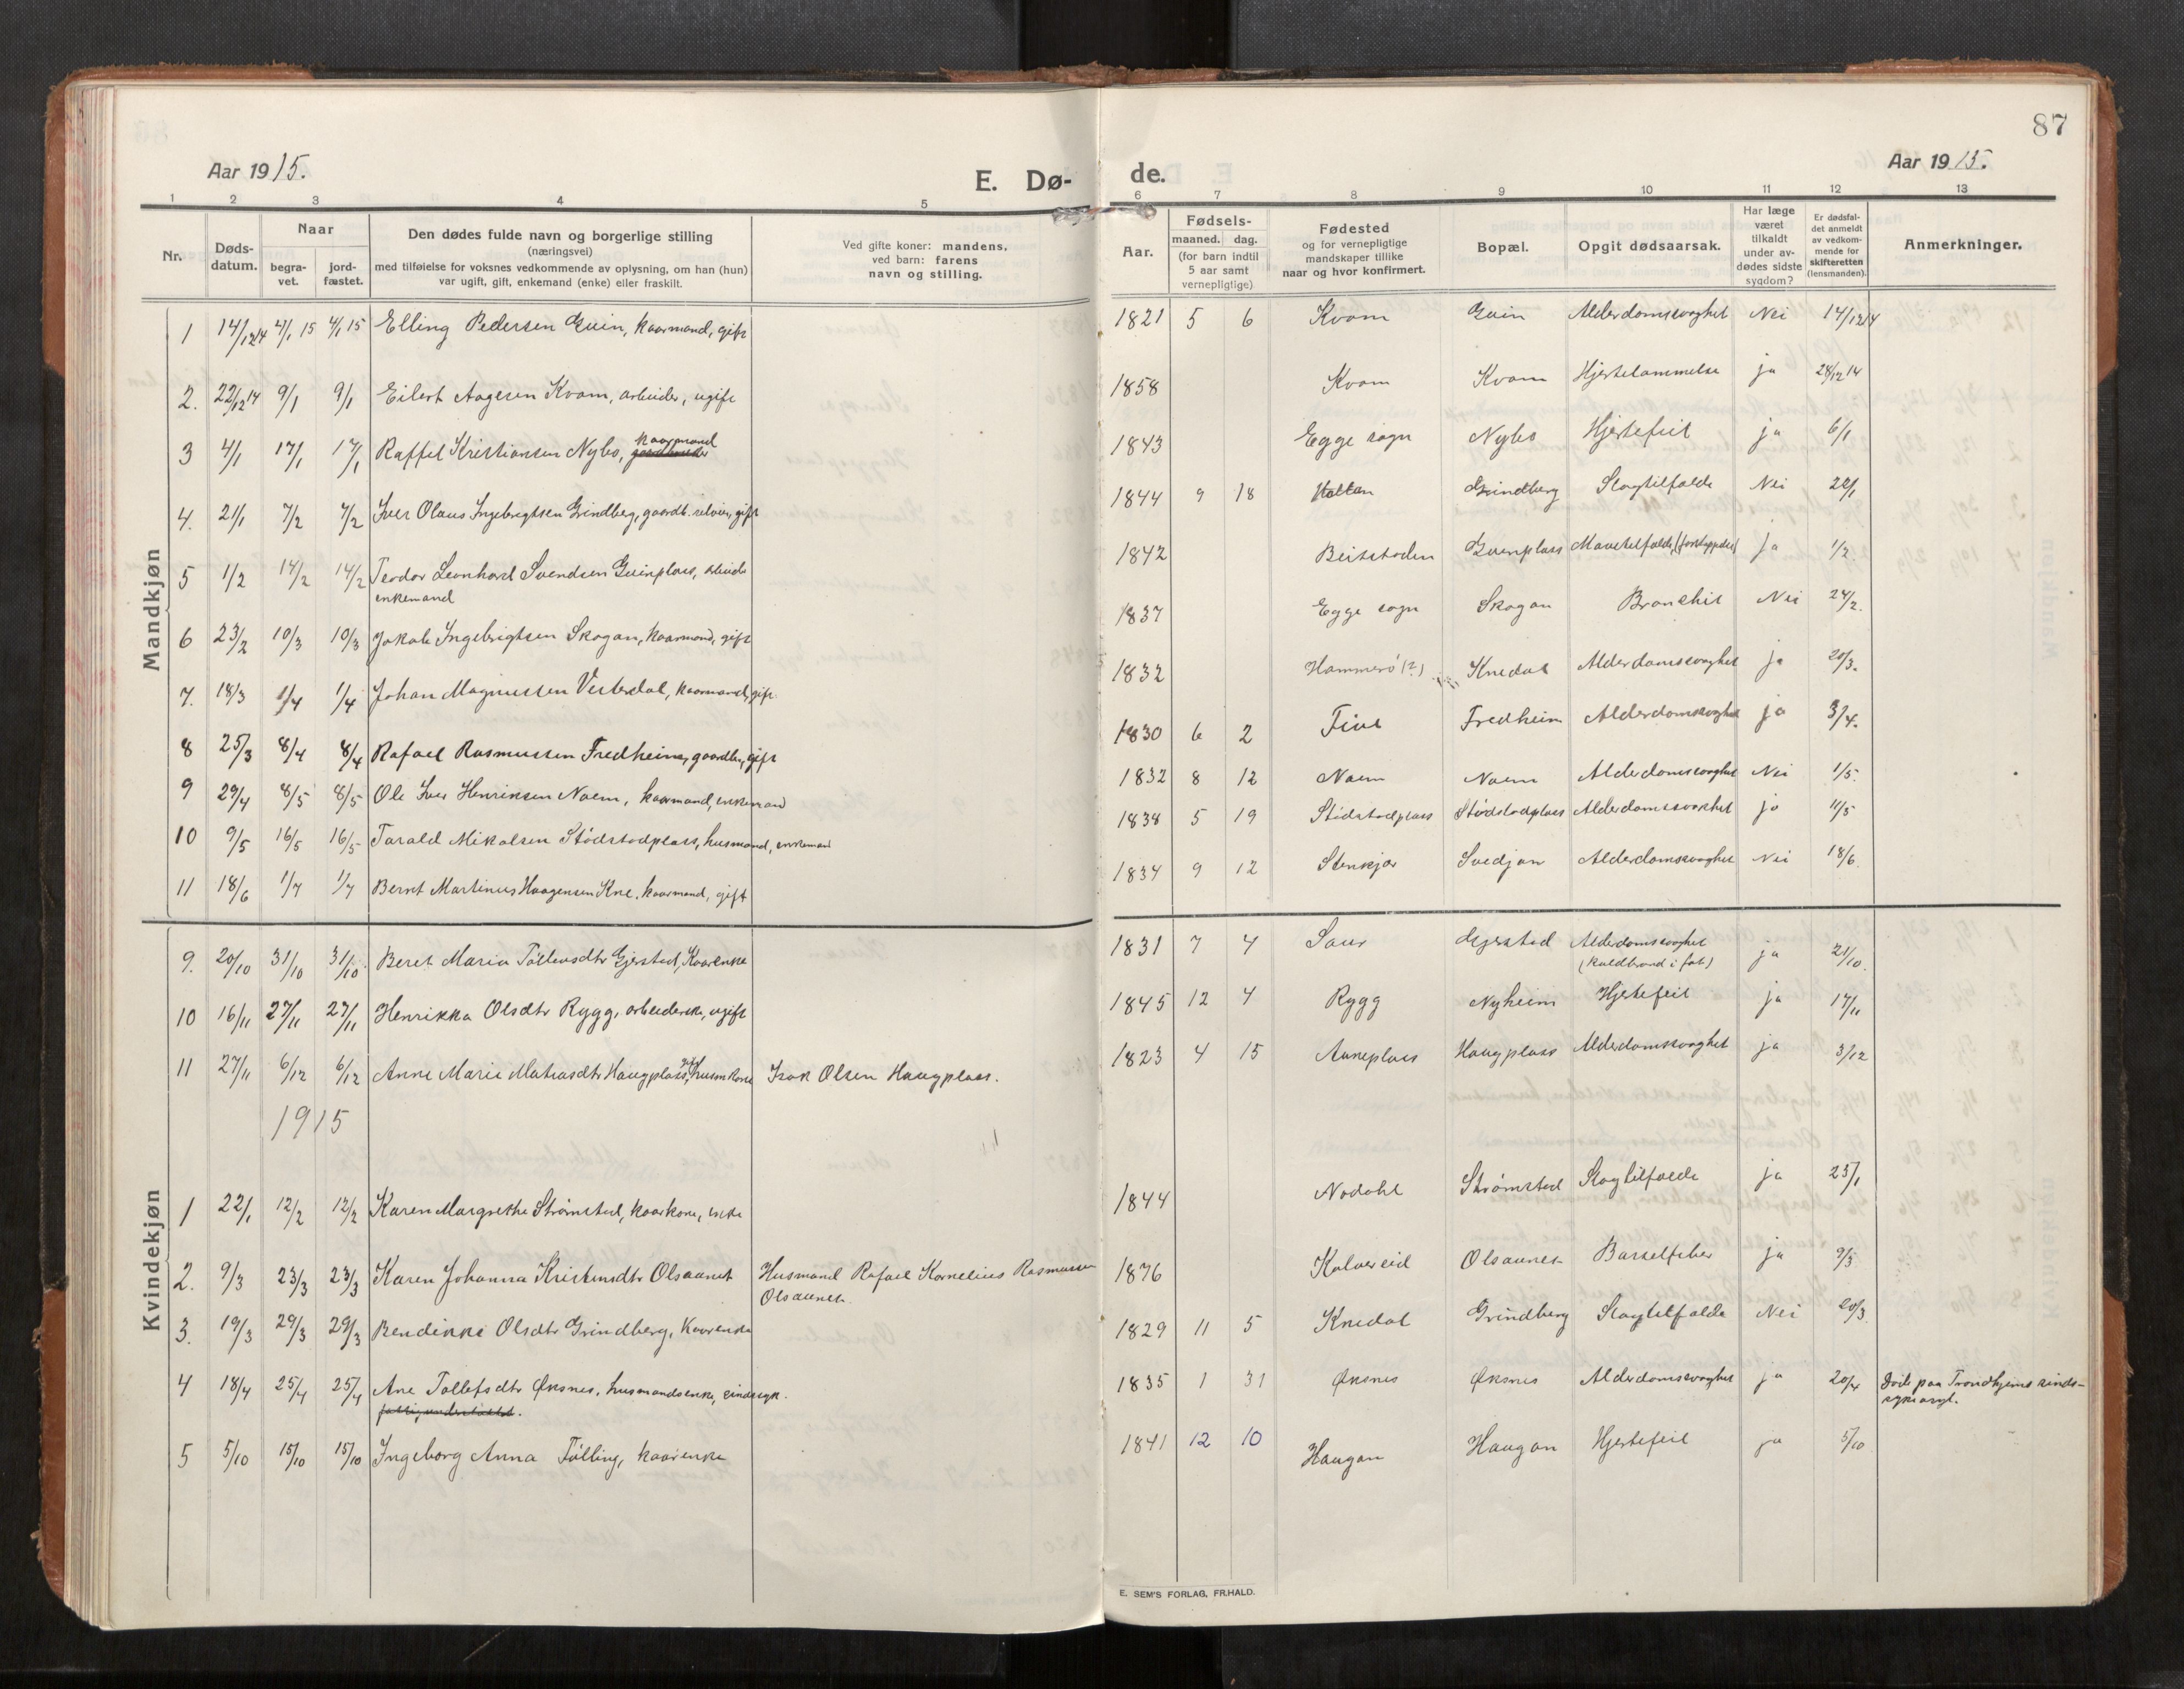 87
Aar 1915.
E. Dø-
de.
Aar 1915.
1 2 3 4 5 6 7 8 9 10 11 12 13
Nr.
Døds-
datum.
Naar
begra-
vet.
jord-
fæstet.
Den dødes fulde navn og borgerlige stilling
(næringsvei)
med tilføielse for voksnes vedkommende av oplysning, om han (hun)
var ugift, gift, enkemand (enke) eller fraskilt.
Ved gifte koner: mandens,
ved barn: farens
navn og stilling.
Aar.
Fødsels-
maaned. dag.
(for barn indtil
5 aar samt
vernepligtige)
Fødested
og for vernepligtige
mandskaper tillike
naar og hvor konfirmert.
Bopæl.
Opgit dødsaarsak.
Har læge
været
tilkaldt
under av-
dødes sidste
sygdom?
Er dødsfal-
det anmeldt
av vedkom-
mende for
skifteretten
(lensmanden).
Anmerkninger.
Mandkjøn
1 14/12 14 4/1 15 4/1 15 Elling Pedersen Guin, kaarmand, gift 1821 5 6 Kvam Guin Alderdomssvaghet Nei 14/12 14
2. 22/12 14 9/1 9/1 Eilert Aagesen Kvam, arbeider, ugift 1858 Kvam Kvam Hjertelammelse ja 28/12 14
3 4/1 17/1 17/1 Raffel Kristiansen Nybo, kaarmand 1843 Egge sogn Nybo Hjertefeil ja 6/1
4. 21/1 7/2 7/2 Iver Olaus Ingebrigtsen Grindberg, gaardb. selveier, gift 1844 9 18 Holten Grindberg Slagtilfælde Nei 22/1
5 1/2 14/2 14/2 Teodor Leonhard Svendsen Guinplass, arbeider
enkemand 1842 Beitstaden Guinplass Mavetilfælde, ja 1/2
6 23/2 10/3 10/3 Jakob Ingebrigtsen Skogan, kaarmand, gift 1837 Egge sogn Skogan Bronchit Nei 24/2.
7. 18/3 1/4 1/4 Johan Magnussen Vesterdal, kaarmand, gift. 1832 Hammerö (?) Knedal Alderdomssvaghet ja 20/3.
8 25/3 8/4 8/4 Rafael Rasmussen Fredheim, gaardbr., gift 1830 6 2 Five Fredheim Alderdomssvaghet ja 3/4.
9 29/4 8/5 8/5 Ole Iver Henriksen Naem, kaarmand, enkemand 1832 8 12 Naem Naem Alderdomssvaghet Nei 1/5.
10 9/5 16/5 16/5 Tarald Mikalsen Stödstadplass, husmand, enkemand 1838 5 19 Stödstadplass Stödstadplass Alderdomssvakhet ja 11/5
11 18/6 1/7 1/7 Bernt Martinus Haagensen Kne, kaarmand, gift 1834 9 12 Stenkjær Svedjan Alderdomssvaghet Nei 18/6.
Kvindekjøn
9. 20/10 31/10 31/10 Beret Maria Tollevsdtr Gjerstad, Kaarenke 1831 7 4 Saur Gjerstad Alderdomssvaghet
(koldbrand i fot) ja 21/10.
10 16/11 27/11 27/11 Henrikka Olsdtr Rygg, arbeiderske, ugift 1845 12 4 Rygg Nyheim Hjertefeil ja 17/11
11 27/11 6/12 6/12 Anne Marie Matiasdtr Haugplass, gift husmkone Isak Olsen Haugplass. 1823 4 15 Auneplass Haugplass Alderdomssvaghet ja 3/12
1915
1 22/1 12/2 12/2 Karen Margrethe Strømstad, kaarkone, enke 1844 Nodahl Strømstad Slagtilfælde ja 25/1
2. 9/3 23/3 23/3 Karen Johanna Kristensdtr Olsaunet Husmand Rafael Kornelius Rasmussen
Olsaunet. 1876 Kolvereid Olsaunet Barselfeber ja 9/3
3. 19/3 29/3 29/3 Bendikke Olsdtr Grindberg, Kaarenke 1829 11 5 Knedal Grindberg Slagtilfælde Nei 20/3
4 18/4 25/4 25/4 Ane Tollefsdtr Øksnes, husmandsenke, sindssyk.
fattigunderstøttet. 1835 1 31 Øksnes Øksnes Alderdomssvaghet ja 20/4 Døde paa Trondhjems sinds-
sykeasyl.
5 5/10 15/10 15/10 Ingeborg Anna Følling, kaarenke 1841 12 10 Haugan Haugan Hjertefeil ja 5/10
E. SEM'S FORLAG, FR.HALD.